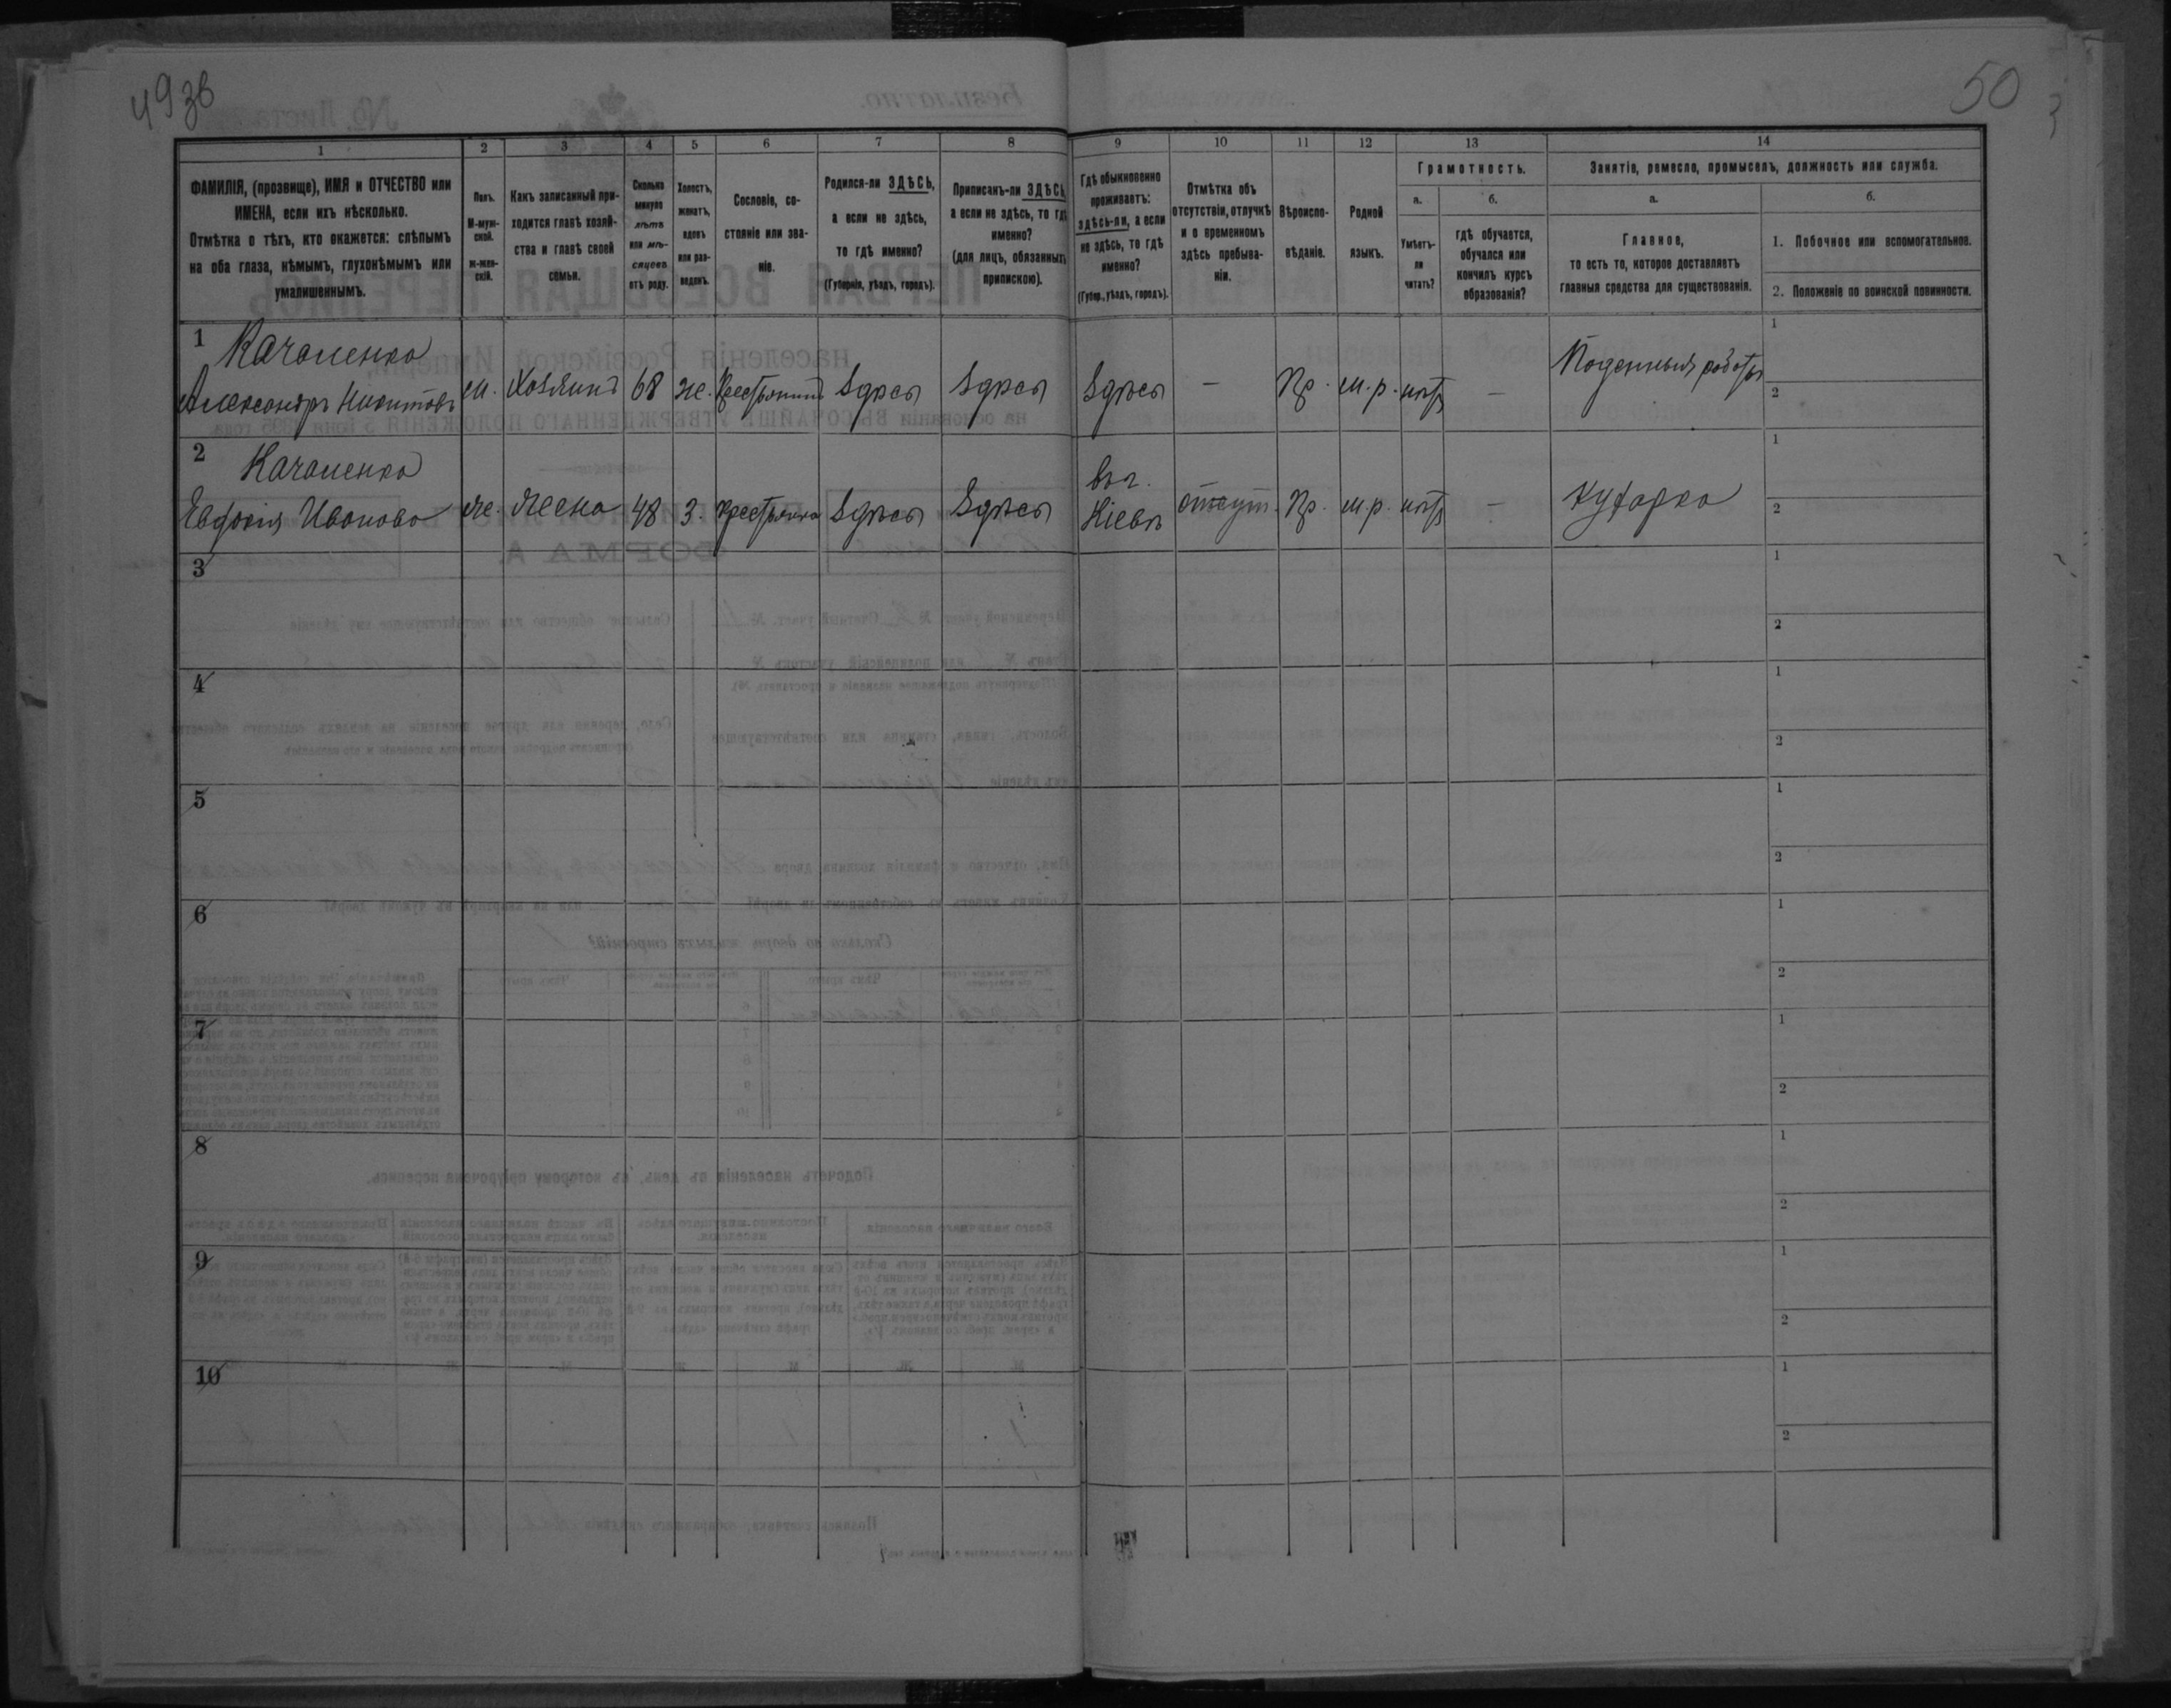 49 зв
50
1 2 3 4 5 6 7 8 9 10 11 12 13 14
ФАМИЛІЯ, (прозвище), ИМЯ и ОТЧЕСТВО или
ИМЕНА, если ихъ нѣсколько.
Отмѣтка о тѣхъ, кто окажется: слѣпымъ
на оба глаза, нѣмымъ, глухонѣмымъ или
умалишеннымъ.
Полъ.
М-муж-
ской.
ж-жен-
скій.
Какъ записанный при-
ходится главѣ хозяй-
ства и главѣ своей
семьи.
Сколько
минуло
лѣтъ
или мѣ-
сяцевъ
отъ роду.
Холостъ,
женатъ,
вдовъ
или раз-
веденъ.
Сословіе, со-
стояніе или зва-
ніе.
Родился-ли ЗДѢСЬ,
а если не здѣсь,
то гдѣ именно?
(Губернія, уѣздъ, городъ).
Приписанъ-ли ЗДѢСЬ
а если не здѣсь, то гдѣ
именно?
(для лицъ, обязанныхъ
припискою).
Гдѣ обыкновенно
проживаетъ:
здѣсь-ли, а если
не здѣсь, то гдѣ
именно?
(Губер., уѣздъ, городъ).
Отмѣтка объ
отсутствіи, отлучкѣ
и о временномъ
здѣсь пребыва-
ніи.
Вѣроиспо-
вѣданіе.
Родной
языкъ.
Грамотность.
а.
Умѣетъ-
ли
читать?
б.
гдѣ обучается,
обучался или
кончилъ курсъ
образованія?
Занятіе, ремесло, промыселъ, должность или служба.
а.
Главное,
то есть то, которое доставляетъ
главныя средства для существованія.
б.
1. Побочное или вспомогательное.
2. Положеніе по воинской повинности.
1 Качаленко
Александръ Никитовъ м. Хозяинъ 68 ж. Крестьянинъ Здѣсь Здѣсь Здѣсь — Пр. м.р. нѣтъ — Поденныя работы
1
2
2 Качаленко
Евдокія Иванова ж. Жена 48 з. Крестьянка Здѣсь Здѣсь въ г. Кіевѣ отсут. Пр. м.р. нѣтъ — Кухарка
1
2
3
1
2
4
1
2
5
1
2
6
1
2
7
1
2
8
1
2
9
1
2
10
1
2